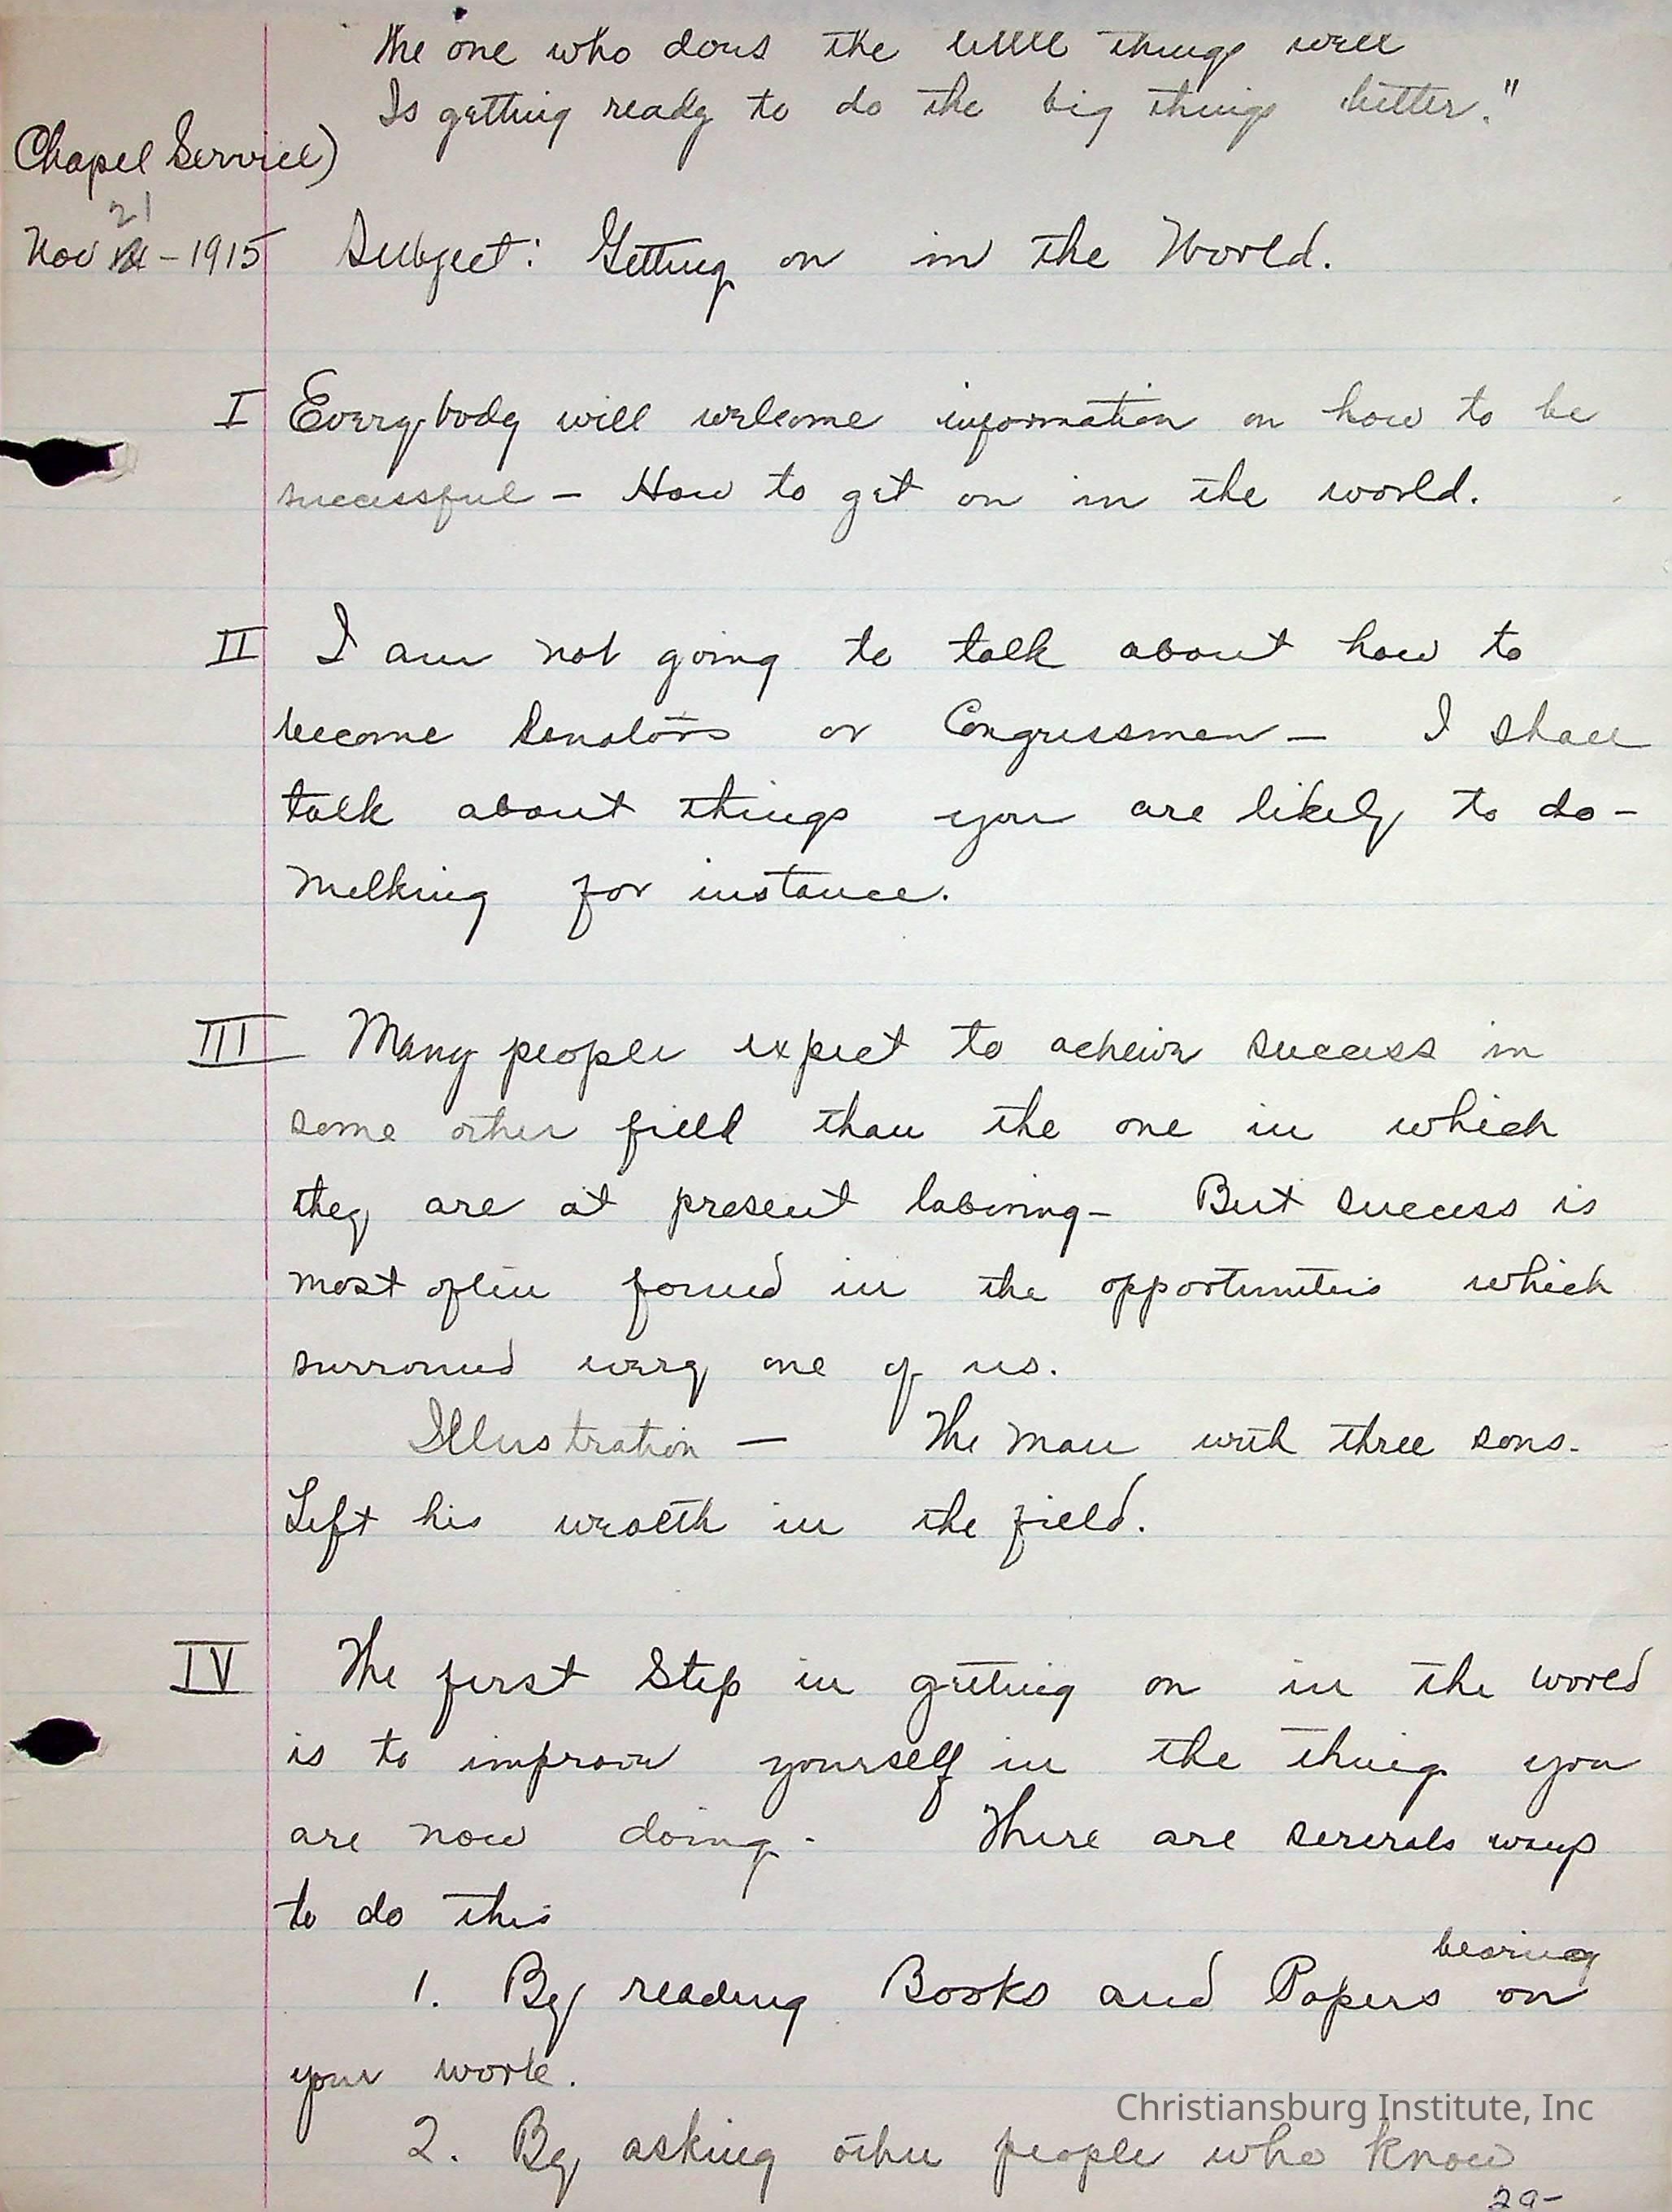 The one who does the little things well
Is getting ready to do the big things better."
Chapel Service)
21
Nov - 1915 Subject: Getting on in the World.
I Everybody will welcome information on how to be
successful - How to get on in the world.
II I am not going to talk about how to
become Senators or Congressmen - I shall
talk about things you are likely to do -
Melking for instance.
III Many people expect to acheive success in
some other field than the one in which
they are at present laboring - But success is
most often found in the opportunities which
surround every one of us.
Illustration - The man with three sons.
Left his wealth in the field.
IV The first Step in getting on in the world
is to improve yourself in the thing you
are now doing. There are severals ways
to do this
bearing
1. By reading Books and Papers on
your work.
Christiansburg Institute, Inc
2. By asking other people who know
29-